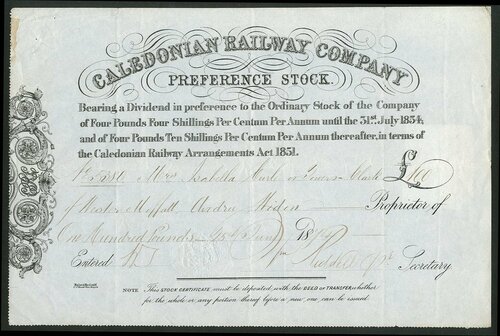 CALEDONIAN RAILWAY COMPANY
PREFERENCE STOCK.
Bearing a Dividend in preference to the Ordinary Stock of the Company
of Four Pounds Four Shillings Per Centum Per Annum until the 31st July 1854,
and of Four Pounds Ten Shillings Per Centum Per Annum thereafter, in terms of
the Caledonian Railway Arrangements Act 1851.
Mrs Isabella or £100
of West Proprietor of
One Hundred Pounds 18
Entered Secretary
NOTE. This STOCK CERTIFICATE must be deposited with the DEED OF TRANSFER whether
for the whole or any portion thereof before a new one can be issued